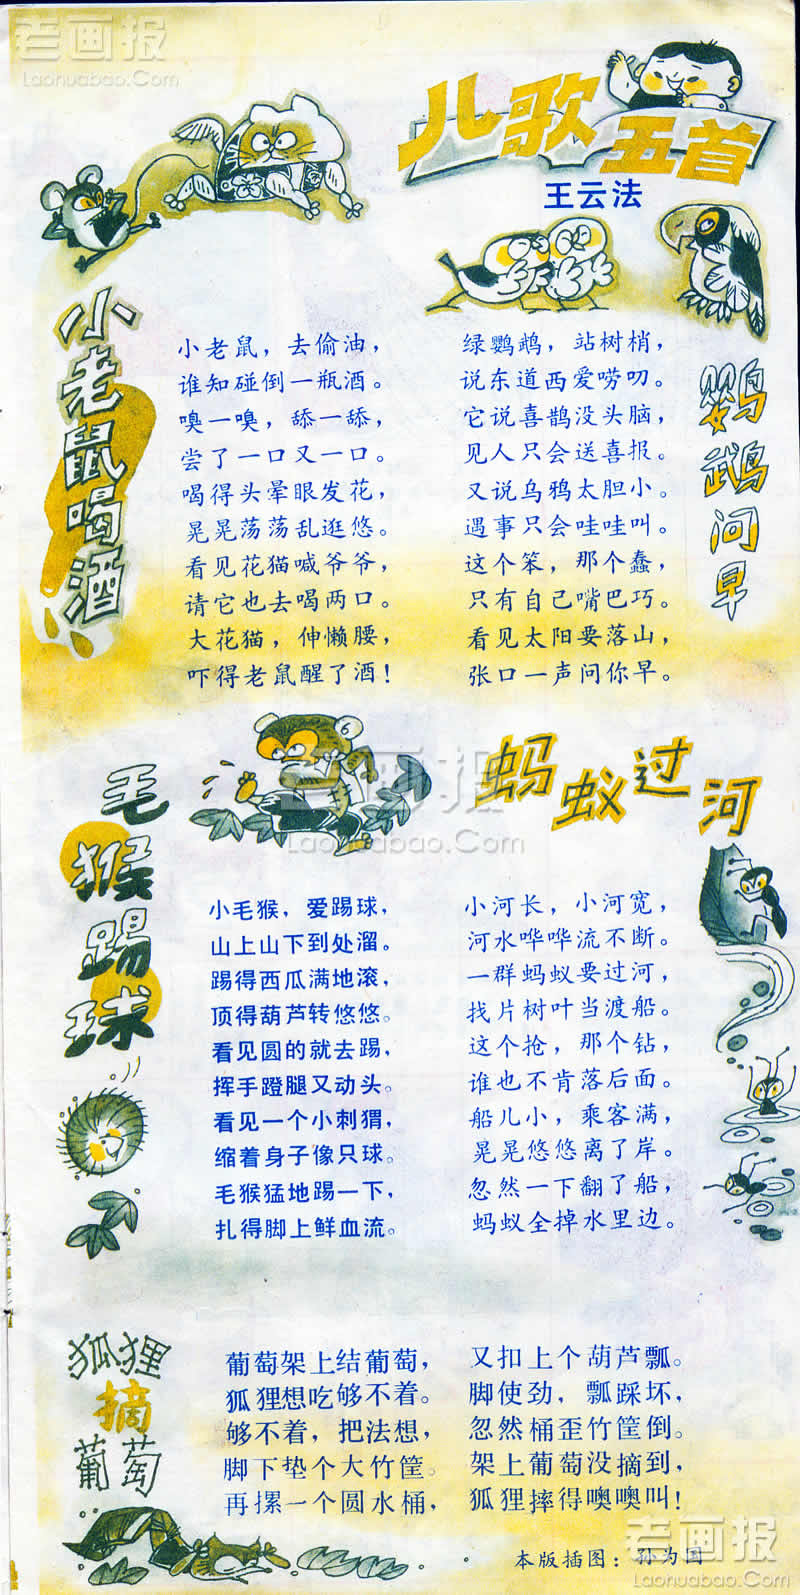 老画报
Laohuabao.Com
儿歌五首
王云法
小老鼠喝酒
小老鼠，去偷油，
谁知碰倒一瓶酒。
嗅一嗅，舔一舔，
尝了一口又一口。
喝得头晕眼发花，
晃晃荡荡乱逛悠。
看见花猫喊爷爷，
请它也去喝两口。
大花猫，伸懒腰，
吓得老鼠醒了酒！
鹦鹉问早
绿鹦鹉，站树梢，
说东道西爱唠叨。
它说喜鹊没头脑，
见人只会送喜报。
又说乌鸦太胆小。
遇事只会哇哇叫。
这个笨，那个蠢，
只有自己嘴巴巧。
看见太阳要落山，
张口一声问你早。
毛猴踢球
6
小毛猴，爱踢球，
山上山下到处溜。
踢得西瓜满地滚，
顶得葫芦转悠悠。
看见圆的就去踢，
挥手蹬腿又动头。
看见一个小刺猬，
缩着身子像只球。
毛猴猛地踢一下，
扎得脚上鲜血流。
老画报
Laohuabao.Com
蚂蚁过河
小河长，小河宽，
河水哗哗流不断。
一群蚂蚁要过河，
找片树叶当渡船。
这个抢，那个钻，
谁也不肯落后面。
船儿小，乘客满，
晃晃悠悠离了岸。
忽然一下翻了船，
蚂蚁全掉水里边。
狐狸摘葡萄
葡萄架上结葡萄，
狐狸想吃够不着。
够不着，把法想，
脚下垫个大竹筐。
再摞一个圆水桶，
又扣上个葫芦瓢。
脚使劲，瓢踩坏，
忽然桶歪竹筐倒。
架上葡萄没摘到，
狐狸摔得噢噢叫！
本版插图：孙为国
老画报
Laohuabao.Com